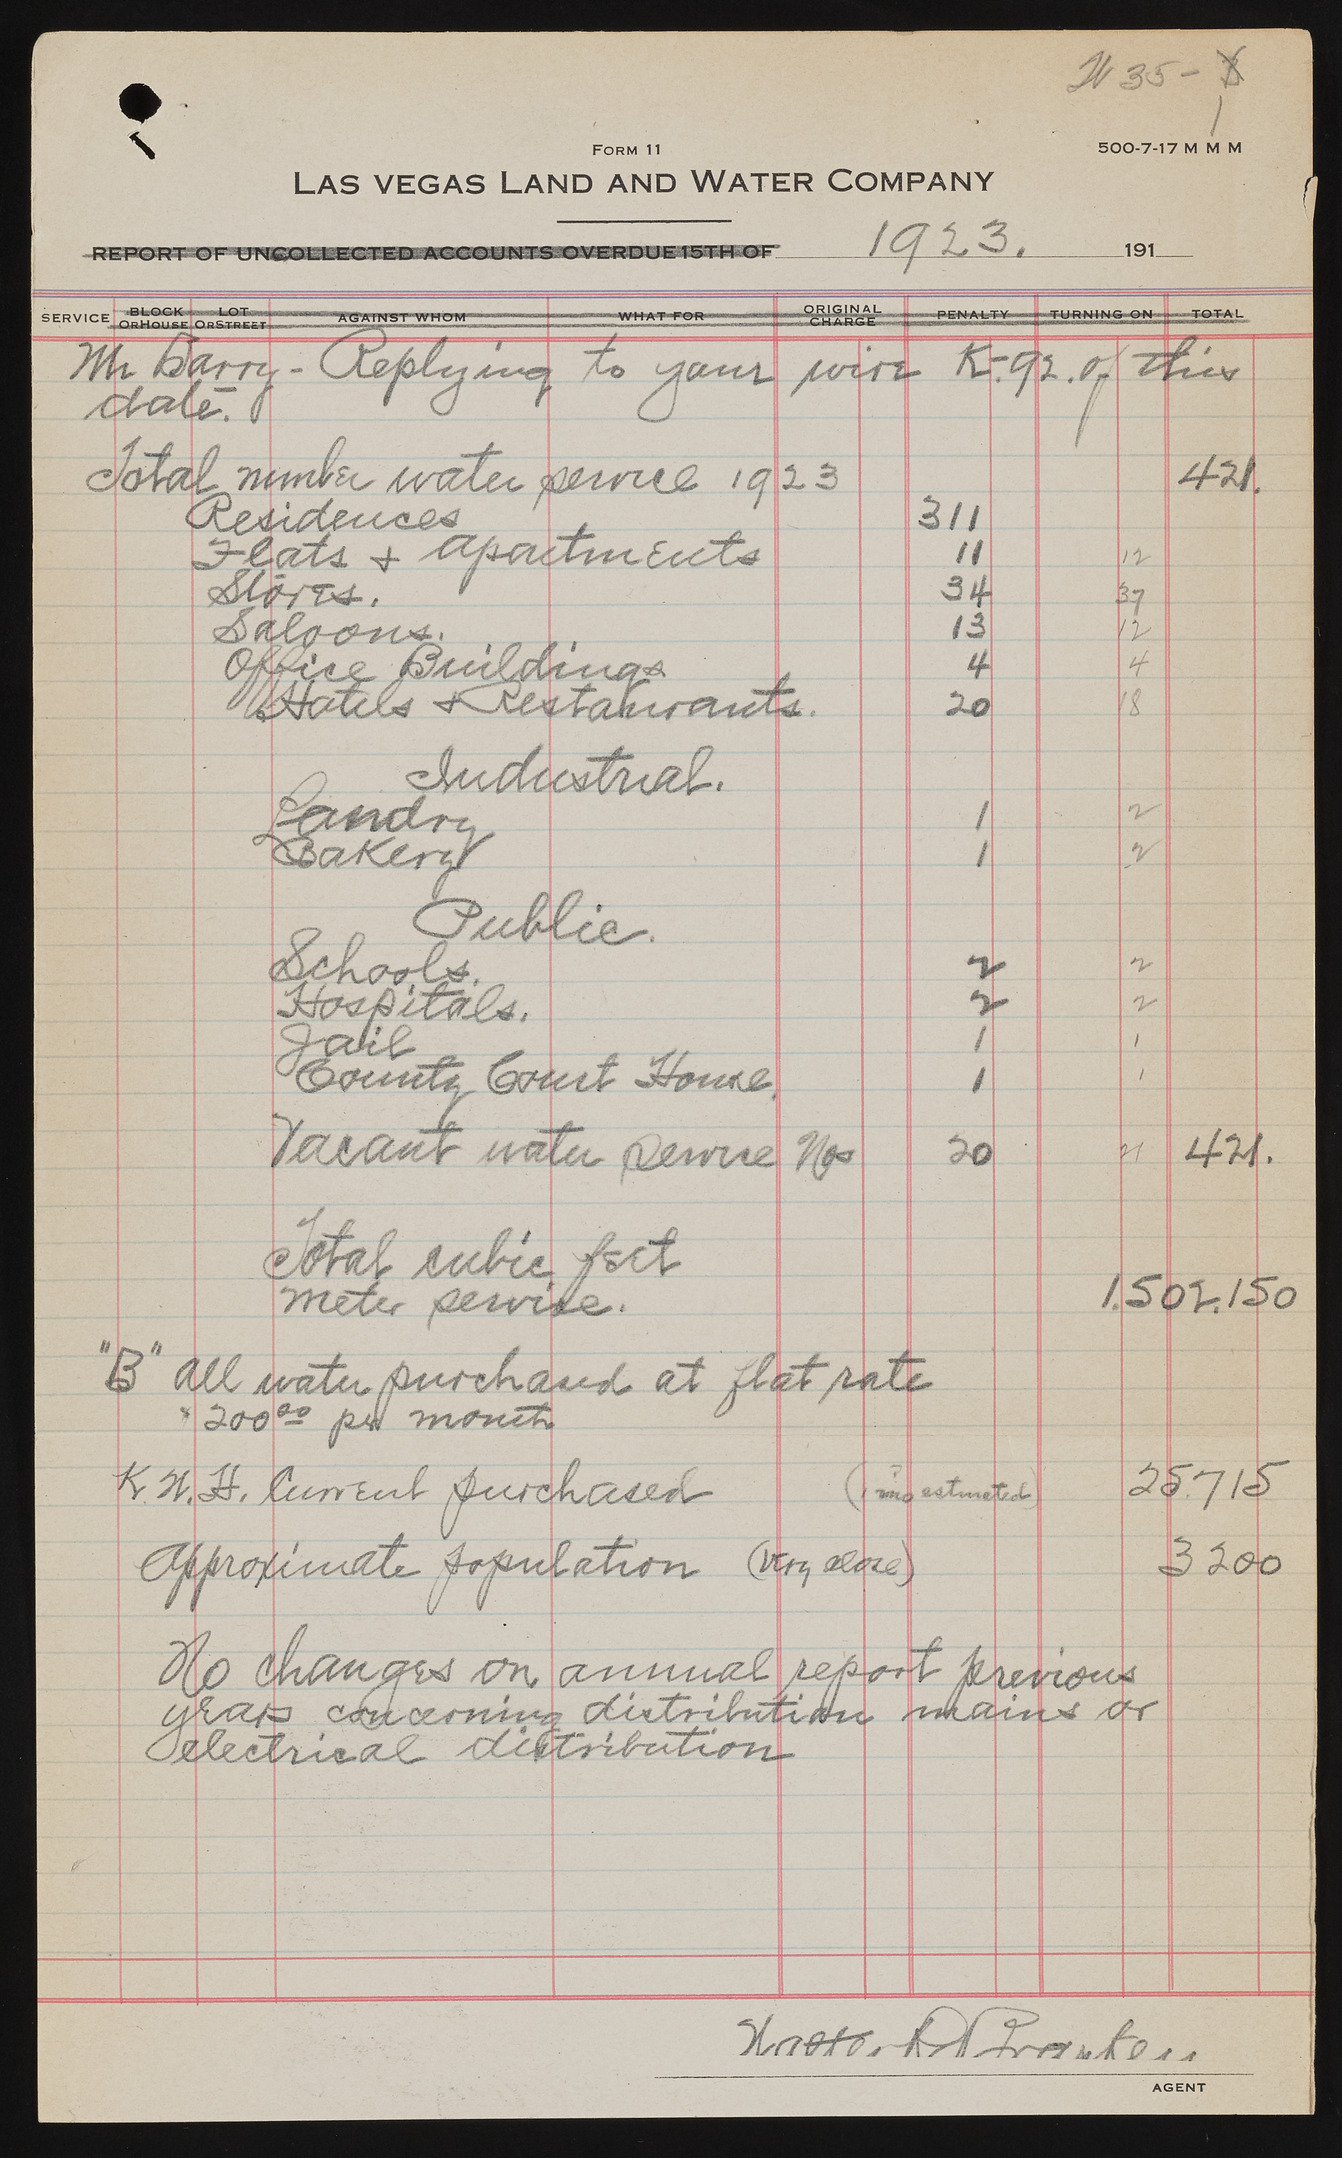 W 35-
1
FORM 11
500-7-17 M M M
LAS VEGAS LAND AND WATER COMPANY
REPORT OF UNCOLLECTED ACCOUNTS OVERDUE 15TH OF 1923. 191
SERVICE BLOCK OR HOUSE LOT OR STREET AGAINST WHOM WHAT FOR ORIGINAL CHARGE PENALTY TURNING ON TOTAL
Mr Barry - Replying to your wire K-92. of this
date.
Total number water service 1923 421.
Residences 311
Flats & apartments 11 12
Stores. 34 37
Saloons. 13 12
Office Buildings 4 4
Hotels & Restaurants. 20 18
Industrial.
Landry 1 2
Bakery 1 2
Public.
Schools. 2 2
Hospitals. 2 2
Jail 1 1
County Court House. 1 1
Vacant water service Nos 20 21 421.
Total cubic feet
meter service. 1.502.150
"B" all water purchased at flat rate
$200 00 per month
K.W.H. Current purchased ( estimated) 25.715
Approximate population (very close) 3200
No changes on annual report previous
years concerning distribution mains or
electrical distribution
Walter R Bracken
AGENT